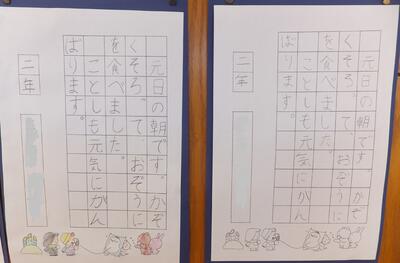 元日の朝です。かぞ
くそろって、おぞうに
を食べました。
ことしも元気にがん
ばります。
二年
元日の朝です。かぞ
くそろって、おぞうに
を食べました。
ことしも元気にがん
ばります。
二年